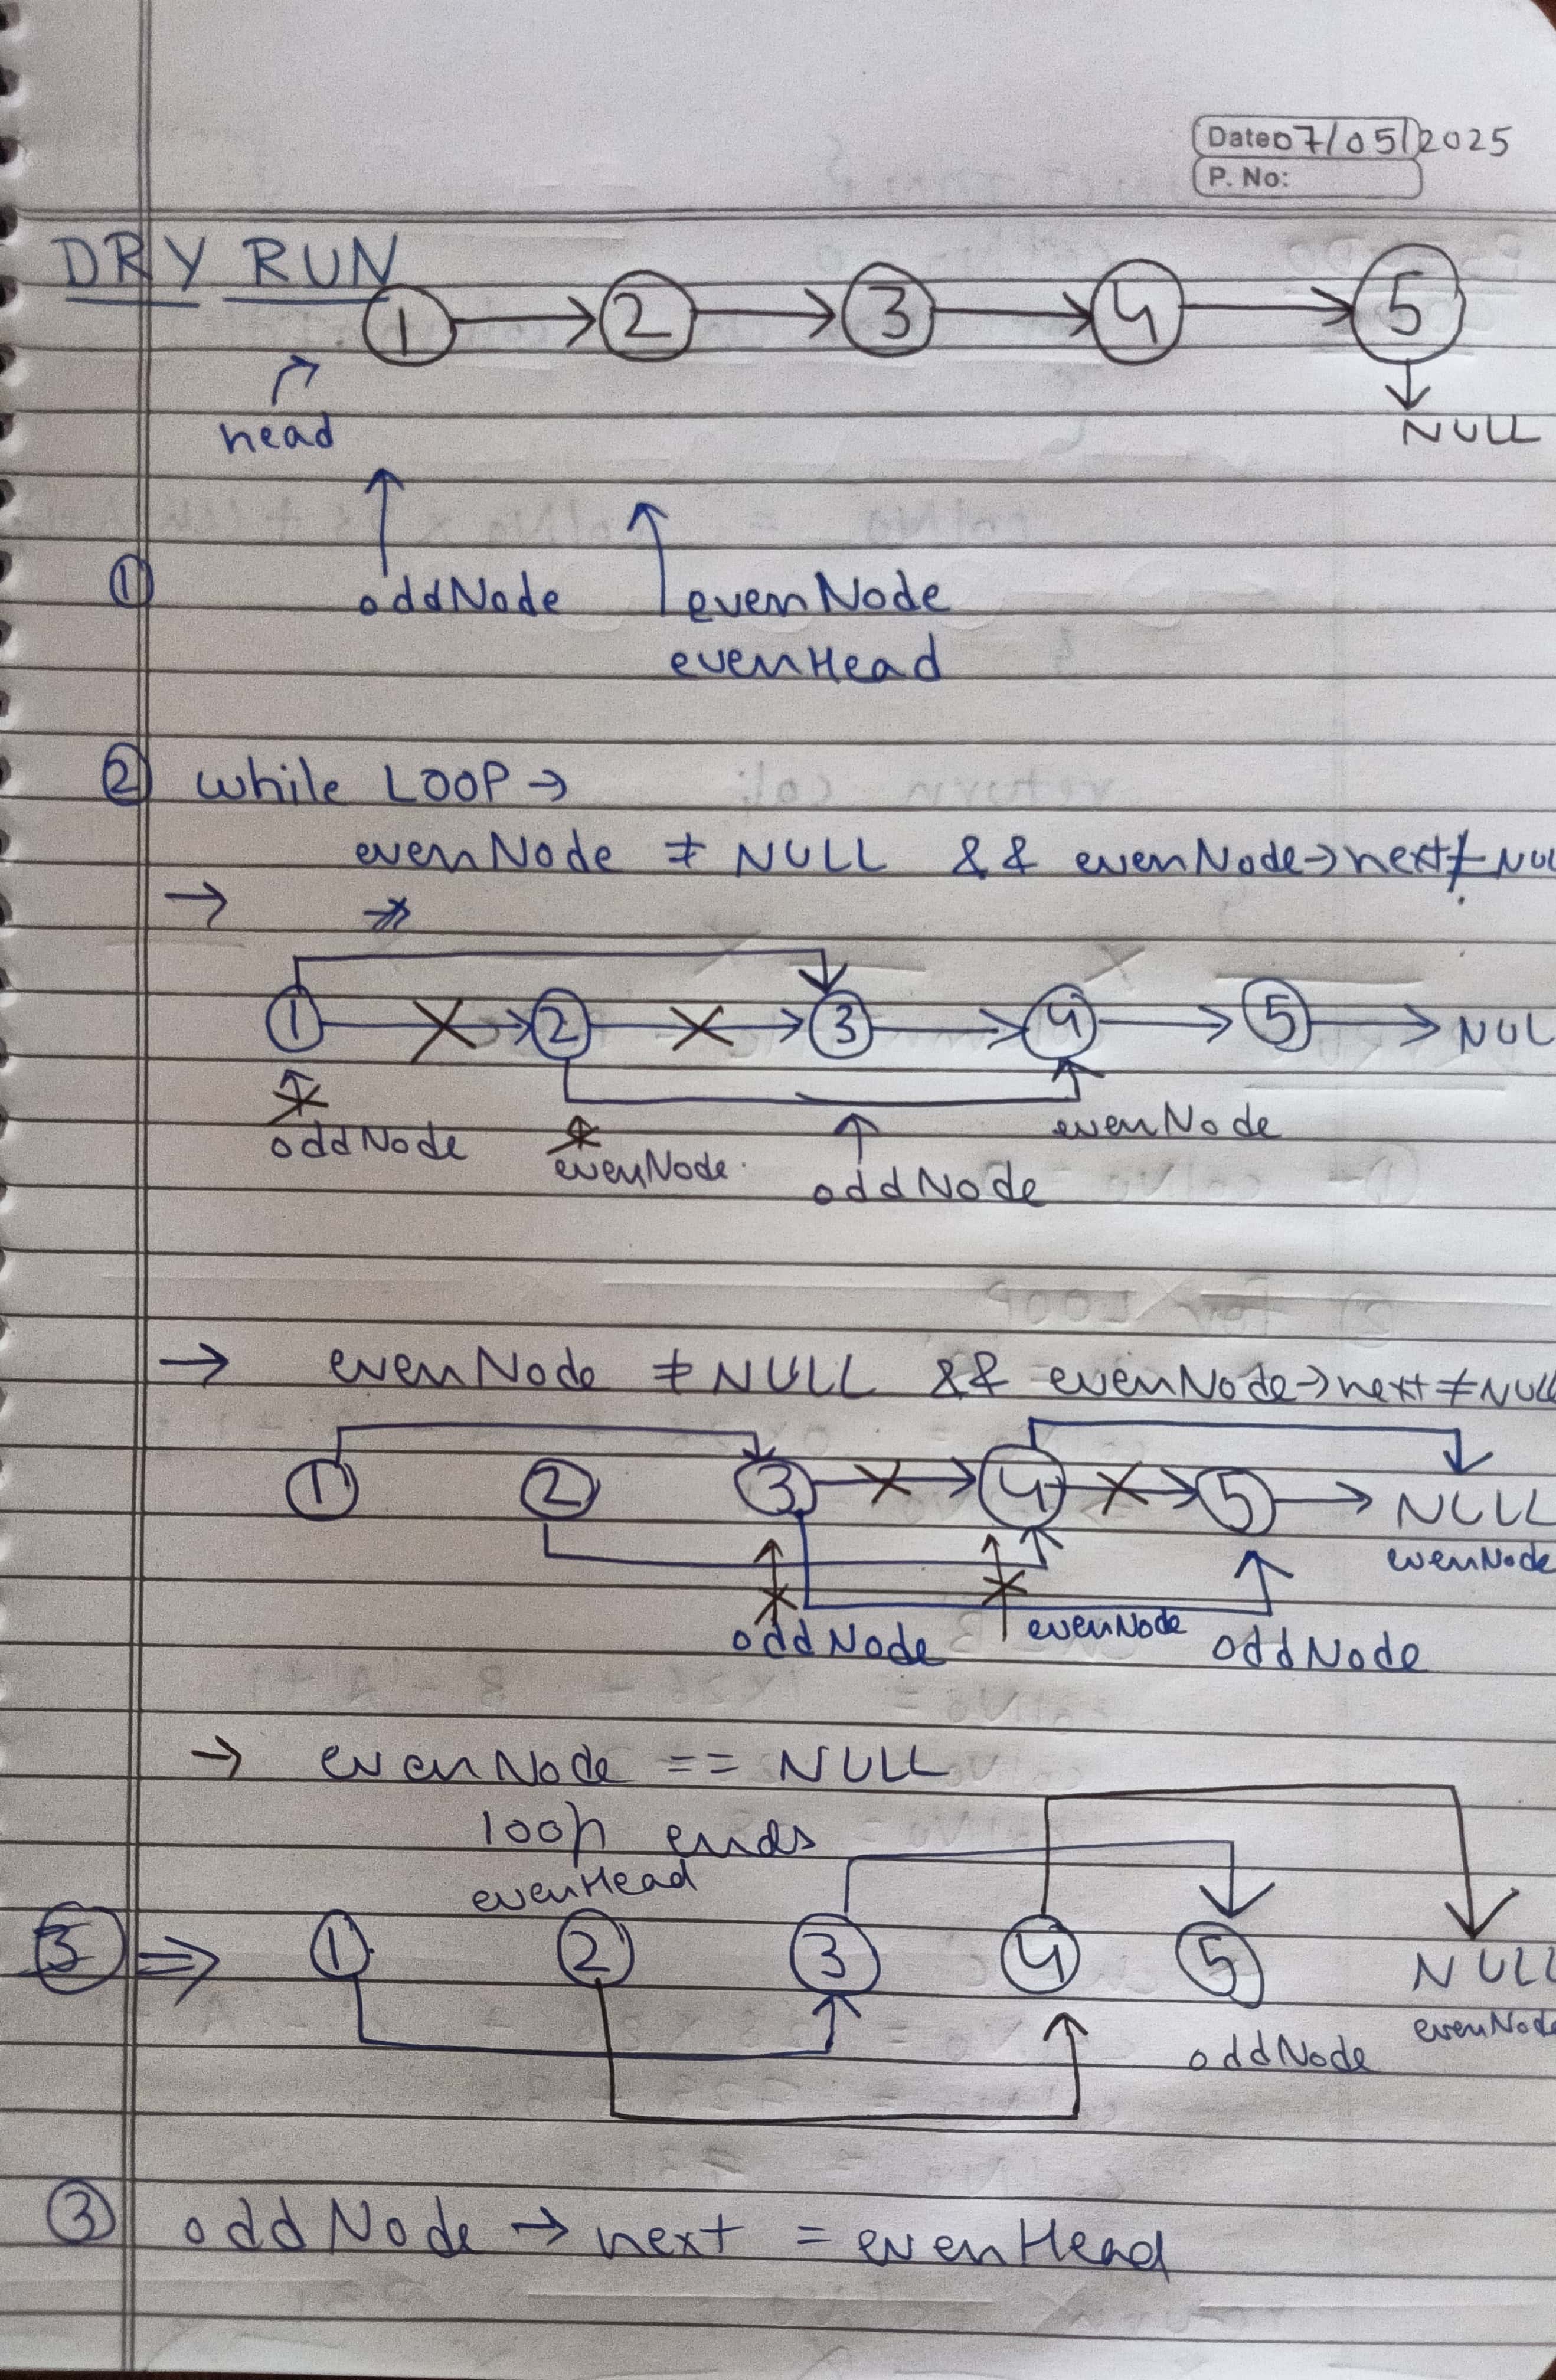 Date 07/05/2025
P. No:
DRY RUN
1 → 2 → 3 → 4 → 5
head
NULL
① oddNode evenNode
evenHead
② while LOOP →
evenNode ≠ NULL && evenNode→next ≠ NUL
→
1 → 2 → 3 → 4 → 5 → NUL
oddNode evenNode oddNode evenNode
→ evenNode ≠ NULL && evenNode→next ≠ NULL
1 2 3 → 4 → 5 → NULL
evenNode
oddNode evenNode oddNode
→ evenNode == NULL
loop ends
evenHead
3 ⇒ 1 2 3 4 5 NULL
oddNode evenNode
③ oddNode → next = evenHead